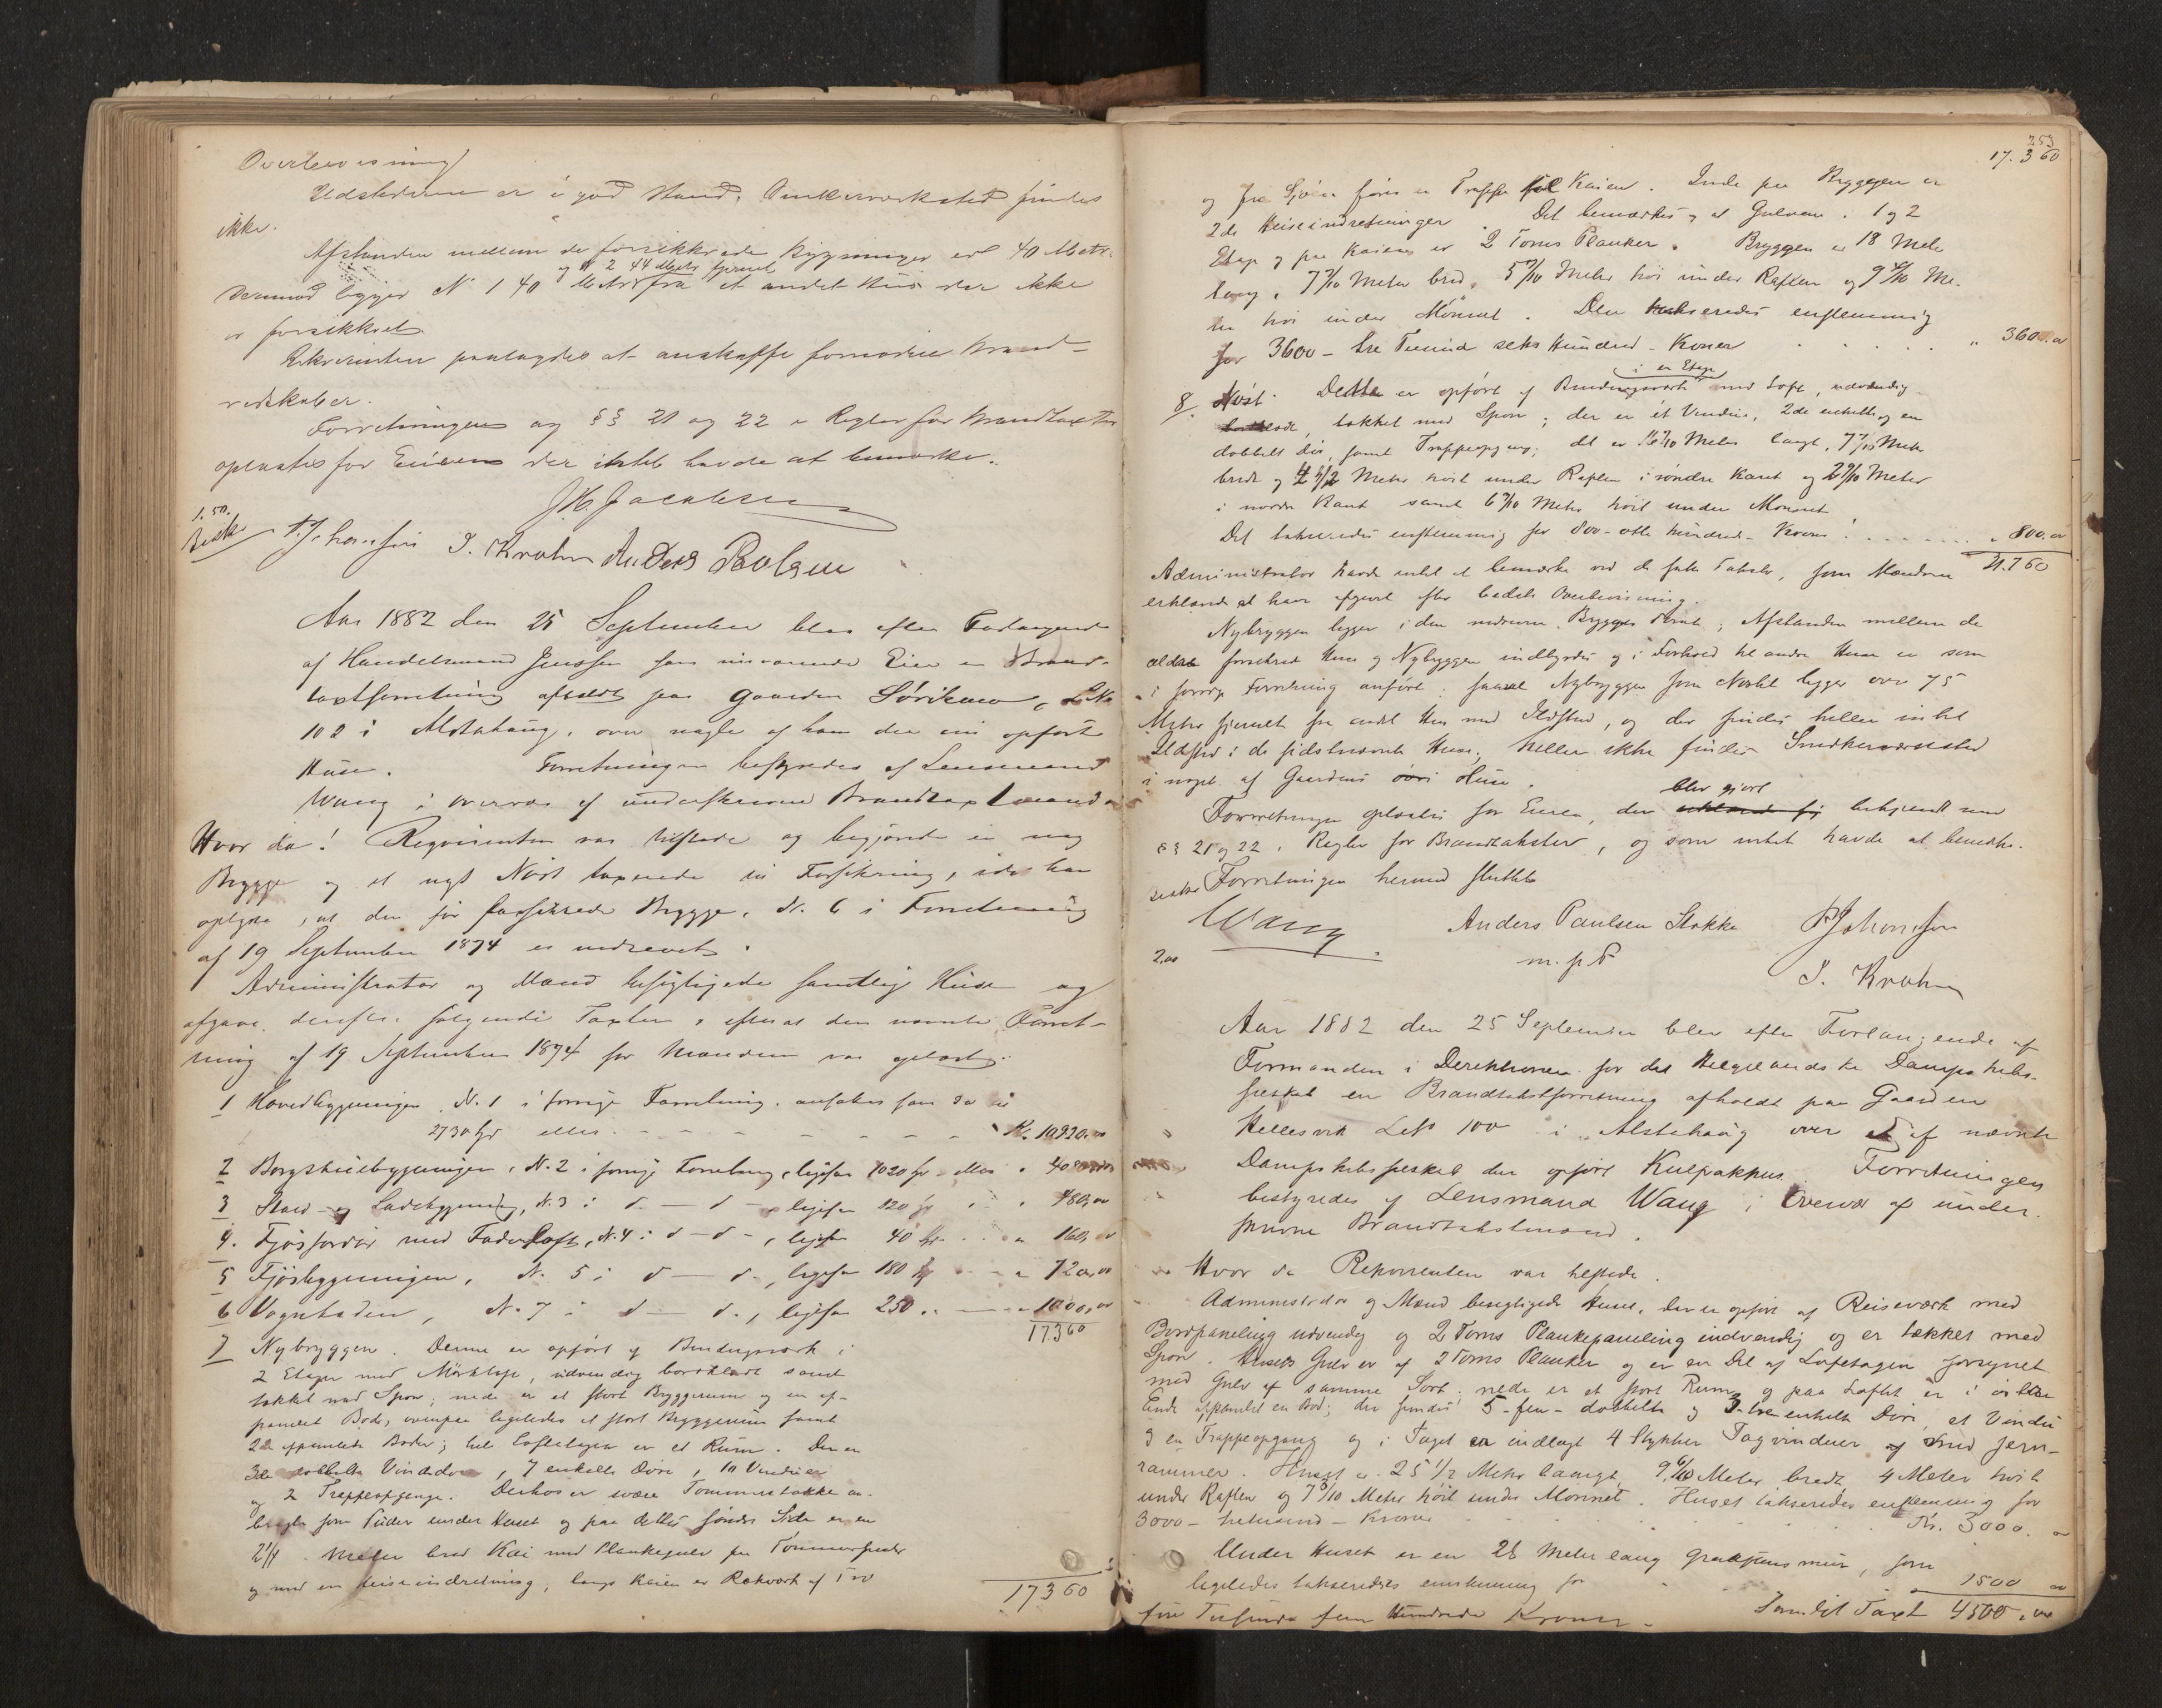 Overbevisning
Ildstederne er i god Stand. Snedkerværksted findes
ikke.
Afstanden mellem de forsikkrede Bygninger er 40 Metr.
og N 2 44 Meter fjernet
Derimod ligger N 1 40 Metr fra et andet Huus der ikke
er forsikkret
Rekvirenten paalagdes at anskaffe fornødne Brand-
redskaber.
Forretningen og §§ 21 og 22 i Regler for Brandtaxter
oplæstes for Eieren der intet havde at bemærke.
J H Jacobsen
1.50.
Johansen I. Krohn Anders Polsen
Aar 1882 den 25 September blev efter Forlangende
af Handelsmand Jenssen som nuværende Eier en Brand-
taxtforretning afholdt paa Gaarden Sörikaro, L N
102 i Alstahaug, over nogle af ham der nu opførte
Huse. Forretningen bestyredes af Lensmand
Wang i Overvær af underskrevne Brandtaxtmænd
Hvor da! Reqvirenten var tilstede og begjærede en ny
Brygge og et nyt Nøst taxerede til Forsikring, idet han
oplyste, at den før forsikrede Brygge, N. 6 i Forretning
af 19 September 1874 er nedrevet.
Administrator og Mænd besigtigede samtlige Huse og
afgave derefter følgende Taxter, efterat den nævnte Forret-
ning af 19 September 1874 for Mændene var oplæst.
1 Hovedbygningen, N. 1 i forrige Forretning ansættes som da til
2730 Spd eller - - - - - - Kr. 10920,00
2 Borgstuebygningen, N. 2 i forrige Forretning, ligesaa 1020 Spd eller " 4080,00
3 Stald- og Ladebygning, N. 3 i d. - d - ligesaa 120 Spd " " 480,00
4. Fjøsfordør med Foderloft, N. 4 i d - d -, ligesaa 40 Spd - " 160,00
5 Fjøsbygningen, N. 5 i d - d., ligesaa 180 Spd - " 720,00
6 Vognboden, N. 7 i d - d., ligesaa 250 " - " 1000,00
17360
7 Nybryggen. Denne er opført af Bindingsværk i
2 Etager med Mörkloft, udvendig bordklædt samt
tækket med Spon; nede er et stort Bryggerum og en af-
panelet Bod, ovenpaa ligeledes et stort Bryggerum samt
2de afpanelede Boder; hele Loftetagen er et Rum. Der er
3de dobbelte Vindedøre, 7 enkelte Døre, 10 Vinduer
og 2 Trappeopgange. Derhos er svære Tømmerstokke an-
bragte som Piller under Huset og paa dettes søndre Side er en
2 1/4 Meter bred Kai med Plankegulv paa Tömmerpæler
og med en Heiseindretning, langs Kaien er Rækværk af
17360
253
17.360
og fra Sjøen fører en Trappe til Kaien. Inde paa Bryggen er
2de Heiseindretninger Det bemærkes, at Gulvene i 1 og 2
Etage og paa Kaien er 2 Toms Planker. Bryggen er 18 Meter
lang, 7 7/10 Meter bred, 5 7/10 Meter høi under Raften og 9 4/10 Me-
ter høi under Mönnet. Den takseredes enstemmig
for 3600 - tre Tusind seks Hundred - Kroner . . . . . " 3600.00
i en Etage
8. Nøst. Dette er opført af Bindingsværk med Loft, udvendig
bordklædt, tækket med Spon; der er ét Vindue, 2de enkelte og en
dobbelt Dør, samt Trappeopgang; det er 16 7/10 Meter langt, 7 7/10 Meter
bredt og 4 1/2 Meter höit under Raften i søndre Kant og 2 9/10 Meter
i nordre Kant samt 6 7/10 Meter höit under Mønnet
Det takseredes enstemmig for 800 - otte hundrede - Kroner . . . . . . . . " 800.00
21.760
Administrator havde intet at bemærke ved de satte Takster, som Mændene
erklærede at have afgivet efter bedste Overbevisning.
Nybryggen ligger i den nedrevne Brygges Tomt; Afstanden mellem de
ældre forsikrede Huse og Nybryggen indbyrdes og i Forhold til andre Huse er som
i forrige Forretning anført; saavel Nybryggen som Nøstet ligger over 75
Meter fjernet fra andet Hus med Ildsted, og der findes heller intet
Ildsted i de sidstnævnte Huse; heller ikke findes Snedkerværksted
i noget af Gaardens øvri Huse.
blev gjort
Forretningen oplæstes for Eieren, der erklærede sig bekjendt med
§§ 21 og 22 i Regler for Brandtakster, og som intet havde at bemærke.
Forretningen hermed sluttet
Wang Anders Paulsen Stokka Johansen
2,00 m. p. P I. Krohn
Aar 1882 den 25 September blev efter Forlangende af
Formanden i Derektionen for det Helgelandske Dampskibs-
selskab en Brandtakstforretning afholdt paa Gaarden
Hellesvik L N 100 i Alstahaug over et af nævnte
Dampskibsselskab der opført Kulpakhus. Forretningen
bestyredes af Lensmand Wang i Overvær af under-
skrevne Brandtakstmænd.
Hvor da Rekvirenten var tilstede.
Administrator og Mænd besigtigede Huset, der er opført af Reisværk med
Bordpaneling udvendig og 2 Toms Plankepaneling indvendig og er tækket med
Spon. Husets Gulv er af 2 Toms Planker og er en Del af Loftetagen forsynet
med Gulv af samme Sort; nede er et stort Rum, og paa Loftet er i østre
Ende afpanelet en Bod; der findes 5 - fem - dobbelte og 3 - tre enkelte Døre, et Vindu
og en Trappeopgang og i Taget er indlagt 4 Stykker Tagvinduer af med Jern-
rammer. Huset er 25 1/2 Meter langt, 9 6/10 Meter bredt, 4 Meter høit
under Raften og 7 5/10 Meter høit under Mønnet. Huset takseredes enstemmig for
3000 - tretusind - Kroner . . . . . . . Kr. 3000.00
Under Huset er en 28 Meter lang Graastensmur, som
ligeledes takseredes enstemmig for . . . 1500 00
fire Tusinde fem Hundrede Kroner - Samlet Taxt 4500,00